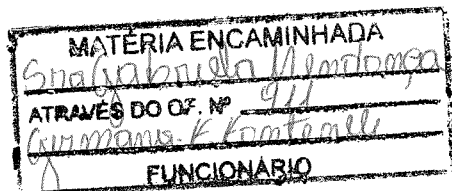 MATÉRIA ENCAMINHADA
Sra Gabriella Mendonça
ATRAVÉS DO OF. Nº 911
Germana. K Fontenele
FUNCIONÁRIO